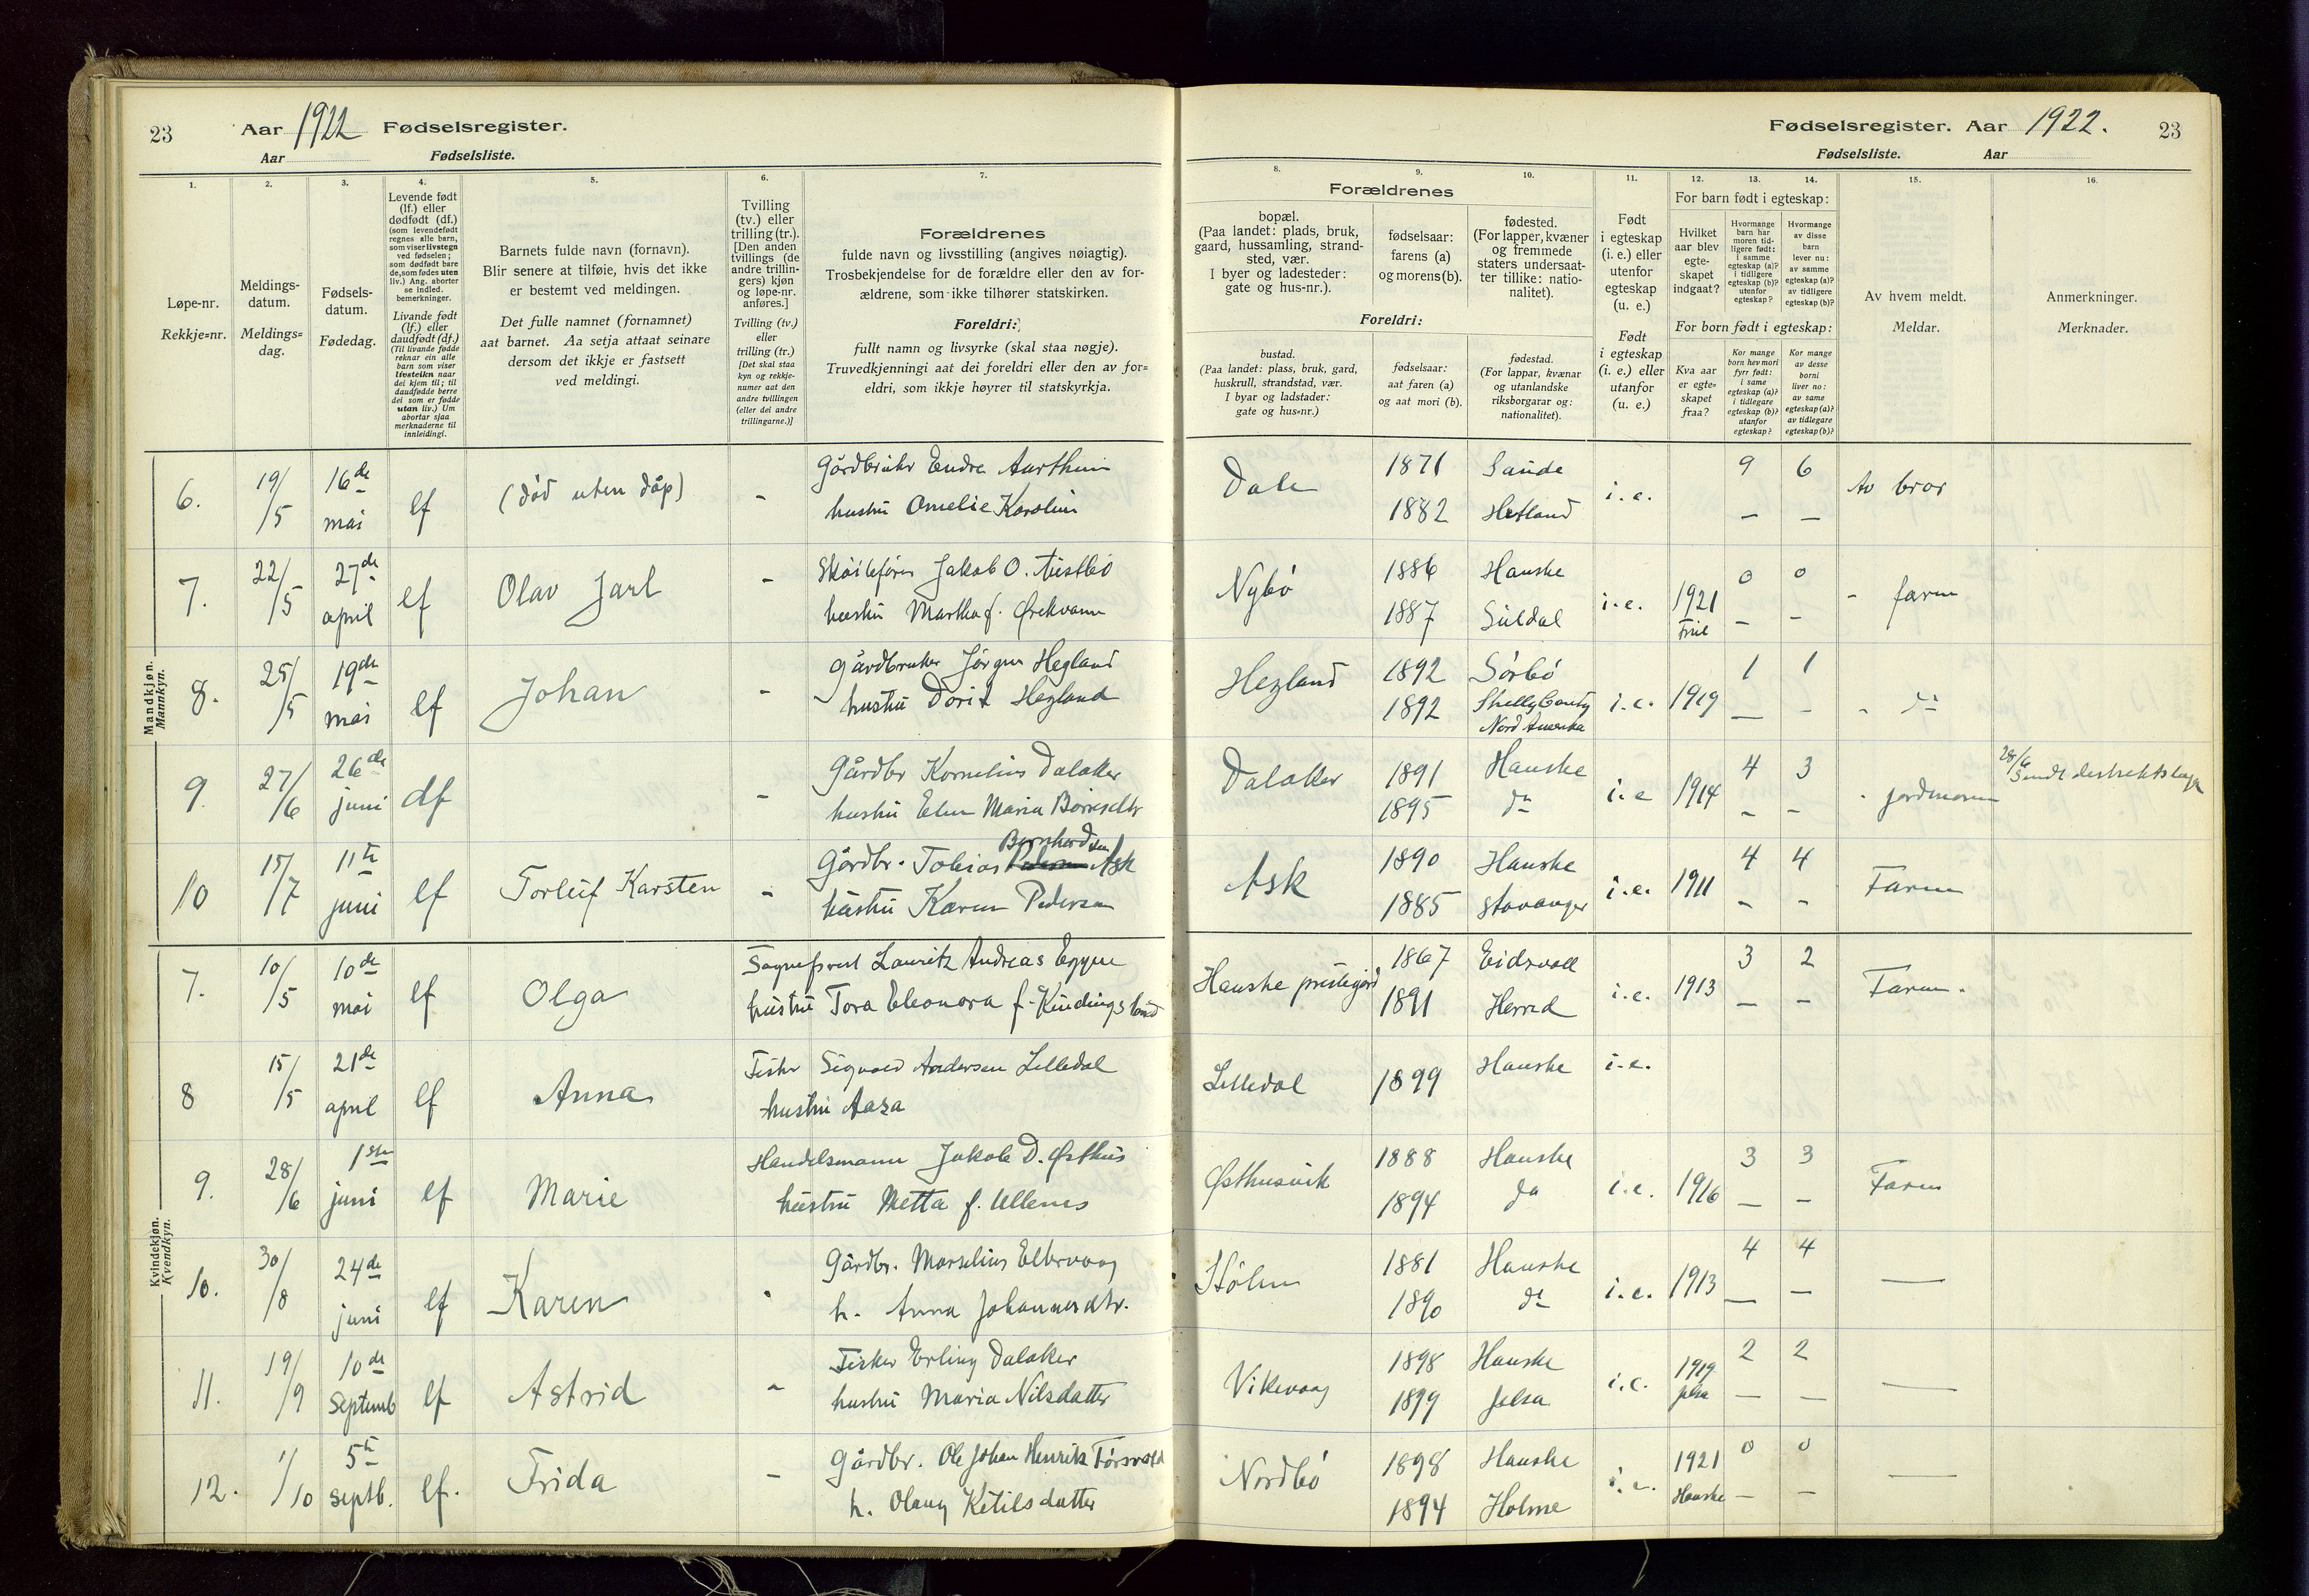 23
Aar 1922 Fødselsregister.
Aar
Fødselsliste.
1.
2.
3.
4.
5.
6.
7.
Løpe-nr.
Rekkje=nr.
Meldings-
datum.
Meldings=
dag.
Fødsels-
datum.
Fødedag.
Levende født
(lf.) eller
dødfødt (df.)
(som levendefødt
regnes alle barn,
som viser livstegn
ved fødselen;
som dødfødt bare
de, som fødes uten
liv.) Ang. aborter
se indled.
bemerkninger.
Livande født
(lf.) eller
daudfødt (df.)
(Til livande fødde
reknar ein alle
barn som viser
livsteikn naar
dei kjem til; til
daudfødde berre
dei som er fødde
utan liv.) Um
abortar sjaa
merknaderne til
innleidingi.
Barnets fulde navn (fornavn).
Blir senere at tilføie, hvis det ikke
er bestemt ved meldingen.
Det fulle namnet (fornamnet)
aat barnet. Aa setja attaat seinare
dersom det ikkje er fastsett
ved meldingi.
Tvilling
(tv.) eller
trilling (tr.).
[Den anden
tvillings (de
andre trillin-
gers) kjøn
og løpe-nr.
anføres.]
Tvilling (tv.)
eller
trilling (tr.)
[Det skal staa
kyn og rekkje-
numer aat den
andre tvillingen
(eller dei andre
trillingarne.)]
Forældrenes
fulde navn og livsstilling (angives nøiagtig).
Trosbekjendelse for de forældre eller den av for-
ældrene, som ikke tilhører statskirken.
Foreldri:
fullt namn og livsyrke (skal staa nøgje).
Truvedkjenningi aat dei foreldri eller den av for=
eldri, som ikkje høyrer til statskyrkja.
Mandkjøn.
Mannkyn.
6. 19/5 16de mai lf (død uten dåp) - Gårdbruker Endre Aarthun
hustru Amelie Karolin
7. 22/5 27de april lf Olav Jarl - Jakob O. Austbø
hustru Martha f.
8. 25/5 19de mai lf Johan - Gårdbruker Jørgen Hegland
hustru Dorit Hegland
9. 27/6 26de juni df - Gårdbr Kornelius Dalaker
hustru Elen Maria
10 15/7 11te juni lf Torleif Karsten - Gårdbr. Tobias Bernhardsen Ask
hustru Karen Pedersen
Kvindekjøn.
Kvendkyn.
7. 10/5 10de mai lf Olga Sogneprest Lauritz Andreas
hustru Tora Eleonora f.
8 15/5 21de april lf Anna Fisker Sigvald Andersen Lilledal
hustru Aasa
9. 28/6 1ste juni lf Marie Handelsmann Jakob D. Østhus
hustru Metta f. Ullenes
10. 30/8 24de juni lf Karen - Gårdbr. Marselius Eltervaag
h. Anna Johannesdtr.
11. 19/9 10de Septemb lf Astrid - Fisker Erling Dalaker
hustru Maria Nilsdatter
12. 1/10 5te Septb. lf. Frida - Gårdbr. Ole Johan Henrik
h. Olaug Ketilsdatter
Fødselsregister. Aar 1922. 23
Fødselsliste. Aar
8.
9.
10.
11.
12.
13.
14.
15.
16.
Forældrenes
bopæl.
(Paa landet: plads, bruk,
gaard, hussamling, strand-
sted, vær.
I byer og ladesteder:
gate og hus-nr.).
fødselsaar:
farens (a)
og morens (b).
fødested.
(For lapper, kvæner
og fremmede
staters undersaat-
ter tillike: natio-
nalitet).
Foreldri:
bustad.
(Paa landet: plass, bruk, gard,
huskrull, strandstad, vær.
I byar og ladstader:
gate og hus=nr.)
fødselsaar:
aat faren (a)
og aat mori (b).
fødestad.
(For lappar, kvænar
og utanlandske
riksborgarar og:
nationalitet).
Født
i egteskap
(i. e.) eller
utenfor
egteskap
(u. e.)
Født
i egteskap
(i. e.) eller
utanfor
(u. e.)
For barn født i egteskap:
Hvilket
aar blev
egte-
skapet
indgaat?
Hvormange
barn har
moren tid-
ligere født:
i samme
egteskap (a)?
i tidligere
egteskap (b)?
utenfor
egteskap?
Hvormange
av disse
barn
lever nu:
av samme
egteskap (a)?
av tidligere
egteskap (b)?
For born født i egteskap:
Kva aar
er egte=
skapet
fraa?
Kor mange
born hev mori
fyrr født:
i same
egteskap (a)?
i tidlegare
egteskap (b)?
utanfor
egteskap?
Kor mange
av desse
borni
liver no:
av same
egteskap (a)?
av tidlegare
egteskap (b)?
Av hvem meldt.
Meldar.
Anmerkninger.
Merknader.
Dale 1871 Sande i.e. 9 6 Av bror
1882 Hetland — —
Nybø 1886 Hauske i.e. 1921 0 0 - faren
1887 Suldal — —
Hegland 1892 Sørbø i.e. 1919 1 1 - do
1892 Shelly County
Nord Amerika — -
Dalaker 1891 Hauske i.e 1914 4 3 - jordmoren 28/6 Sendt
1895 do - -
Ask 1890 Hauske i.e. 1911 4 4 Faren
1885 Stavanger - -
Hauske prestegård 1867 Eidsvoll i.e. 1913 3 2 Faren.
1891 — —
Lilledal 1899 Hauske i.e.
Østhusvik 1888 Hauske i.e. 1916 3 3 Faren
1894 do — —
1881 Hauske i.e. 1913 4 4 —
1890 do — —
Vikevaag 1898 Hauske i.e. 1919 Jelsa 2 2 —
1899 Jelsa — —
Nordbø 1898 Hauske i.e. 1921 Hauske 0 0 —
1894 Holme — —